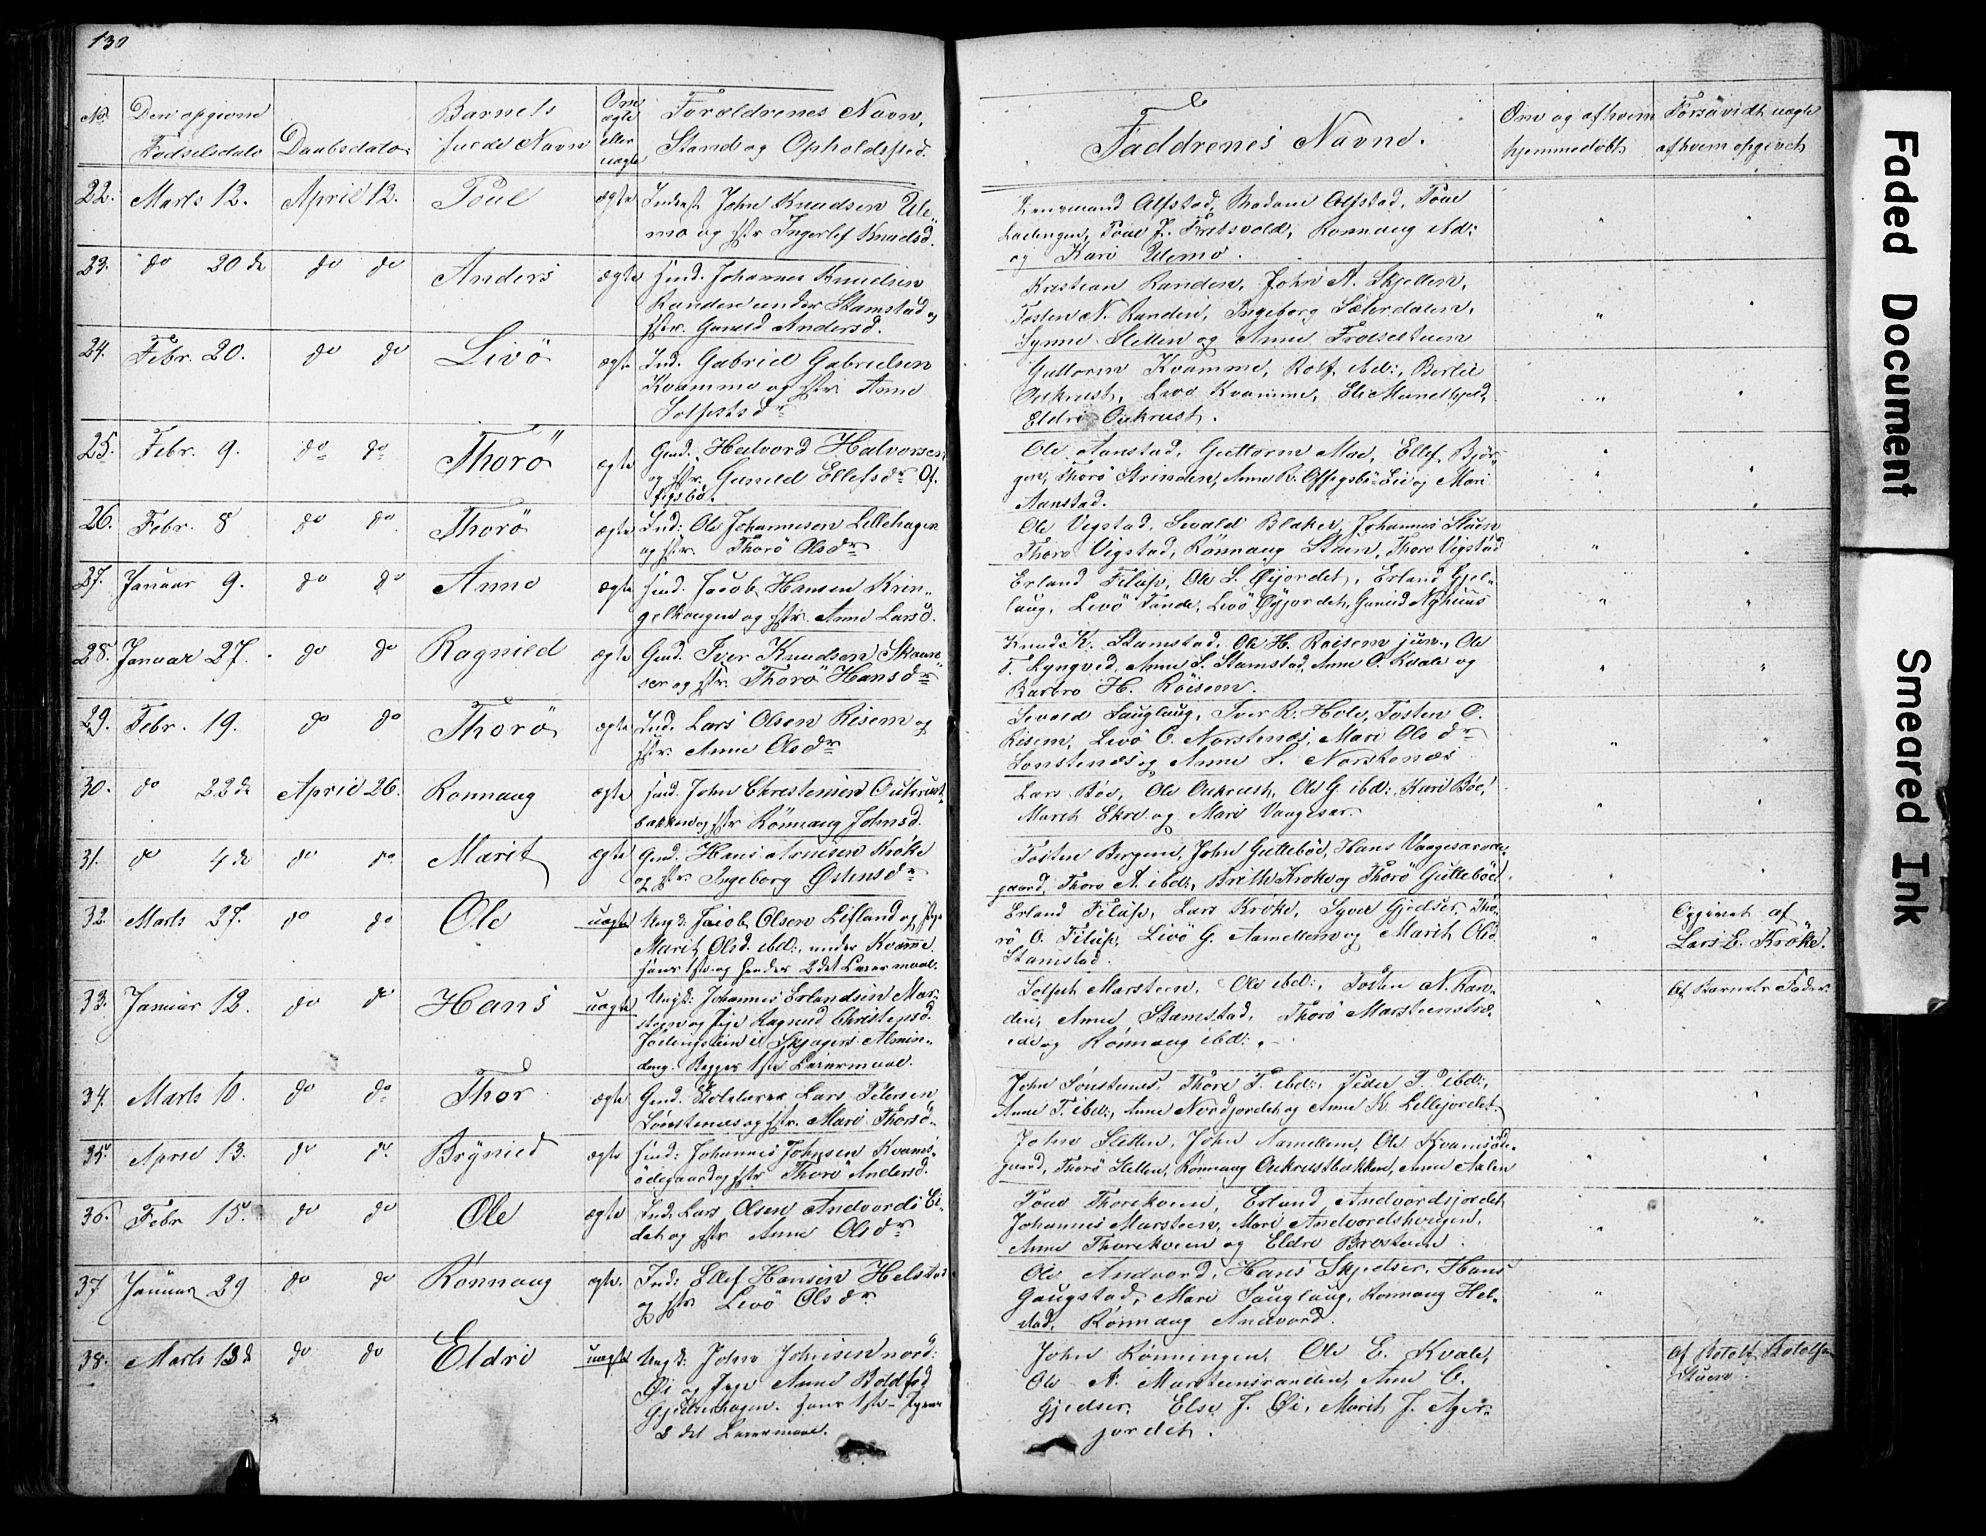 130
No
Den opgivne
Fødselsdato
Daabsdato
Barnets
fulde Navn
Om
ægte
eller
uægte
Forældrenes Navn,
Stand og Opholdssted.
Faddrenes Navne.
Om og af hvem
hjemmedøbt
Forsåvidt uægte
af hvem opgivet
22. Marts 12. April 12. Poul ægte Indest John Knudsen Ule-
mo og hstr Ingerlef Knudsd.
Lensmand Alfstad, Madam Alfstad, Poul
og Kari Ulemo.
23. do 20de do do Anders ægte Huusd. Johannes Knudsen
Randen under Stamstad og
hstr. Gunild Andersd.
Kristian Randen, John A. Skjellem,
Tosten N. Randen, Ingeborg Sæterdalen,
Synne Sletten og Anne
24. Febr. 20. do do Livö ægte Ind. Gabriel Gabrielsen
Kvamme og hstr. Anne
Solfestsdr
Guttorm Kvamme, Rolf ibd:, Bertel
Oukrust, Livö Kvamme,
Eldri Oukrust.
25. Febr. 9. do do Thorö ægte Gmd. Halvord Halvorsen
og hstr. Gunild Ellefsdr Of-
figsbö.
Ole Aanstad, Guttorm Moe, Ellef Bjør-
gen, Thorö Strinden, Anne R. Offigsbö Eie og Mari
Aanstad.
26. Febr. 8 do do Thorö ægte Ind: Ole Johannesen Lillehagen
og hstr. Thorö Olsdr
Ole Vigstad, Sevald Blaker, Johannes Stuen
Thorö Vigstad, Rönnaug Stuen, Thoro Vigstad
27. Januar 9. do do Anne ægte Huusd. Jacob Hansen Krin-
gelhaugen og hstr. Anne Larsd.
Erland Filusp, Ole L. Øyjordet, Erland Gjel-
laug, Livö Sande, Livö Øyjordet, Gunild Nyhuus
28. Januar 27. do do Ragnild ægte Gmd. Iver Knudsen Skam-
ser og hstr. Thorö Hansdr
Knud K. Stamstad, Ole H. Röisem jun., Ole
T. Lyngved, Anne S. Stamstad, Anne O. Kvale og
Barbro H. Röisem.
29. Febr. 19. do do Thorö ægte Ind. Lars Olsen Risem og
hstr. Anne Olsdr
Sevald Sauglaug, Iver R. Hole, Tosten O.
Risem, Livö O. Norstenæs, Mari Olsdr
Lönstenæs og Anne L. Norstenæs
30. do 22de April 26. Ronnaug ægte Huusd. John Christensen Oukrust-
bakken og hstr Rönnaug Johnsd.
Lars Böe, Ole Oukrust, Ole G ibd:, Kari Böe,
Marit Ekre og Mari Vaagesar.
31. do 4de do do Marit ægte Gmd. Hans Arnesen Kröke
og hstr. Ingeborg Østensdr
Tosten Bergene, John Guttebøe, Hans Vaagesarøde-
gaard, Thoro A. ibd:, Brith Kroke og Thorö Guttebøe
32. Marts 27. do do Ole uægte Ungk: Jacob Olsen Lifland og Pige
Marit Olsd. ibd:, under Kvamme
hans 1ste og hendes 2det Leiermaal.
Erland Filusp, Lars Kroke, Syver Gjedser, Tho-
rö O. Filusp, Livö G. Aamellem og Marit Olsd.
Stamstad.
Opgivet af
Lars E. Kröke.
33. Januar 12. do do Hans uægte Ungk: Johannes Erlandsen Mar-
steen og Pige Ragnild Christensd.
i Skjagers Almin-
ding. Begges 1ste Leiermaal.
Solfest Marsteen, Ole ibd:, Tosten N. Ran-
den, Anne Stamstad, Thorö
og Rönnaug ibd:.
Af Barnets Fader
34. Marts 10. do do Thor ægte Gmd. Lars Petersen
Lönstenæs og hstr. Mari Thorsd.
John Sönstenes, Thore T. ibd:, Peder P. ibd:,
Anne T. ibd:, Anne Nordjordet og Anne K. Lillejordet.
35. April 13. do do Brynild ægte Huusd: Johannes Johnsen Kvams-
ödegaard og hstr Thorö Andersd.
John Sletten, John Aamellem, Ole Kvamsöde-
gaard, Thorö Sletten, Rönnaug Oukrustbakken, Anne Aalen
36. Febr 15. do do Ole ægte Ind: Lars Olsen Andvords Ei-
det og hstr Anne Olsdr
Poul Thorekvien, Erland Andvordsjordet
Johannes Marsteen, Mari Andvordshougen,
Anne Thorekvien og Eldri
37 Januar 29 do do Rönnaug ægte. Ind: Ellef Hansen Helstad
og hstr Livö Olsdr
Ole Andvord, Hans Skjedser, Hans
Gaugstad, Mari Sauglaug, Ronnaug Hel-
stad, Rönnaug Andvord.
38. Marts 13de do do Eldri uægte Ungk: John Johnsen nord:
Øi og Pige Anne
Gjedserhagen. hans 1ste Pigens
2det Leiermaal.
John Rönningen, Ole E. Kvale,
Ole N. Marsteensranden, Anne C.
Gjedser, Else J. Øi, Marit J. Ager-
jordet.
Af Botolf Botolfsen
Stuen.
Faded Document
Smeared Ink